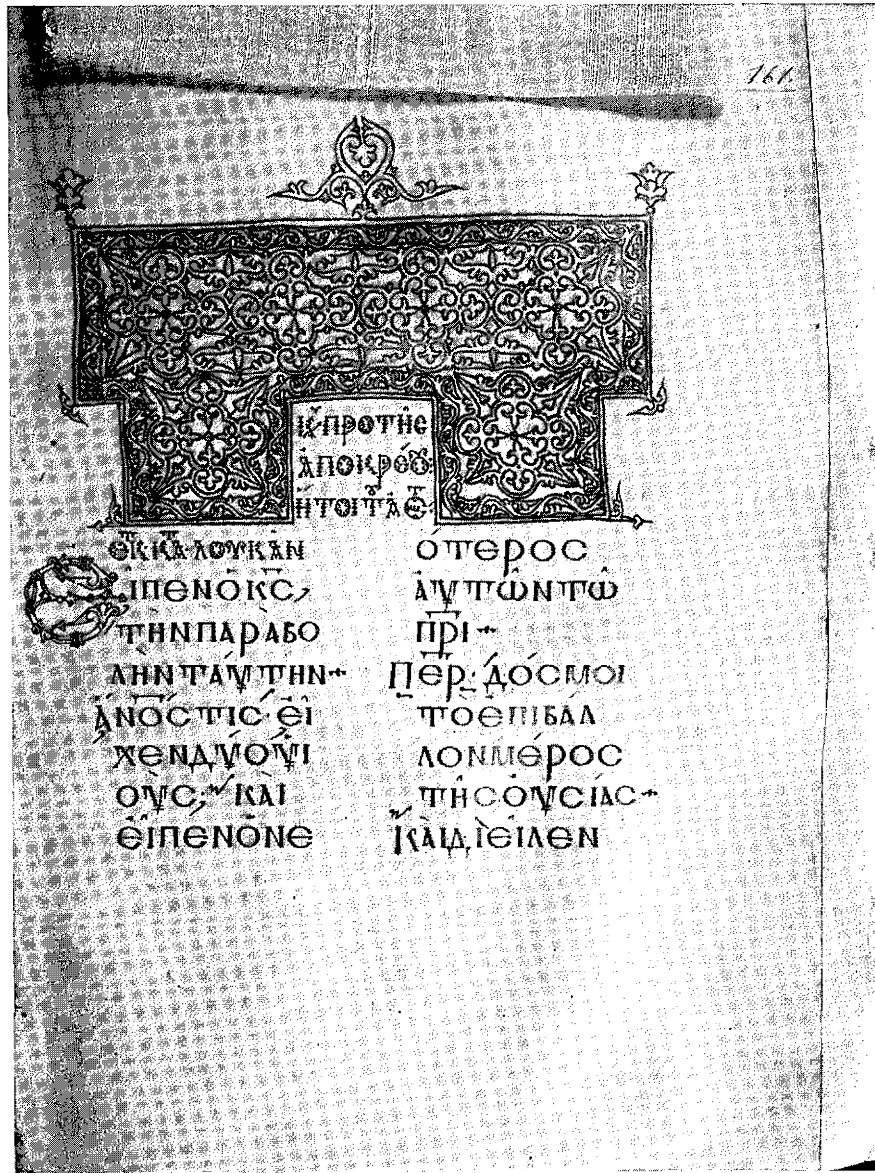 161.
Κ̅Υ̅ ΠΡΟ ΤΗ͂Ϲ
ἈΠΟΚΡΕΟΥ·
ἬΤΟΙ ΤΟΥ͂ ἈϹ
ΕΚ Κ̅Α̅ ΛΟΥΚΑ͂Ν
ΕΙΠΕΝ Ὁ Κ̅Ϲ̅
ΤῊΝ ΠΑΡΑΒΟ
ΛῊΝ ΤΑΥΤΗΝ+
Α̅Ν̅Ο̅Ϲ ΤΙϹ ΕΙ
ΧΕΝ ΔΎΟ ΥἹ
ΟΥϹ, ΚΑῚ
ΕΙΠΕΝ Ὁ ΝΕ
ΌΤΕΡΟϹ
ΑΥΤΩ͂Ν ΤΩ͂
Π̅Ρ̅Ι+
Π̅Ε̅Ρ̅· ΔΌϹ ΜΟΙ
ΤΟ ΕΠΙΒΑΛ
ΛΟΝ ΜΈΡΟϹ
ΤΗϹ ΟΥϹΊΑϹ+
ΚΑῚ ΔΙΕΙΛΕΝ